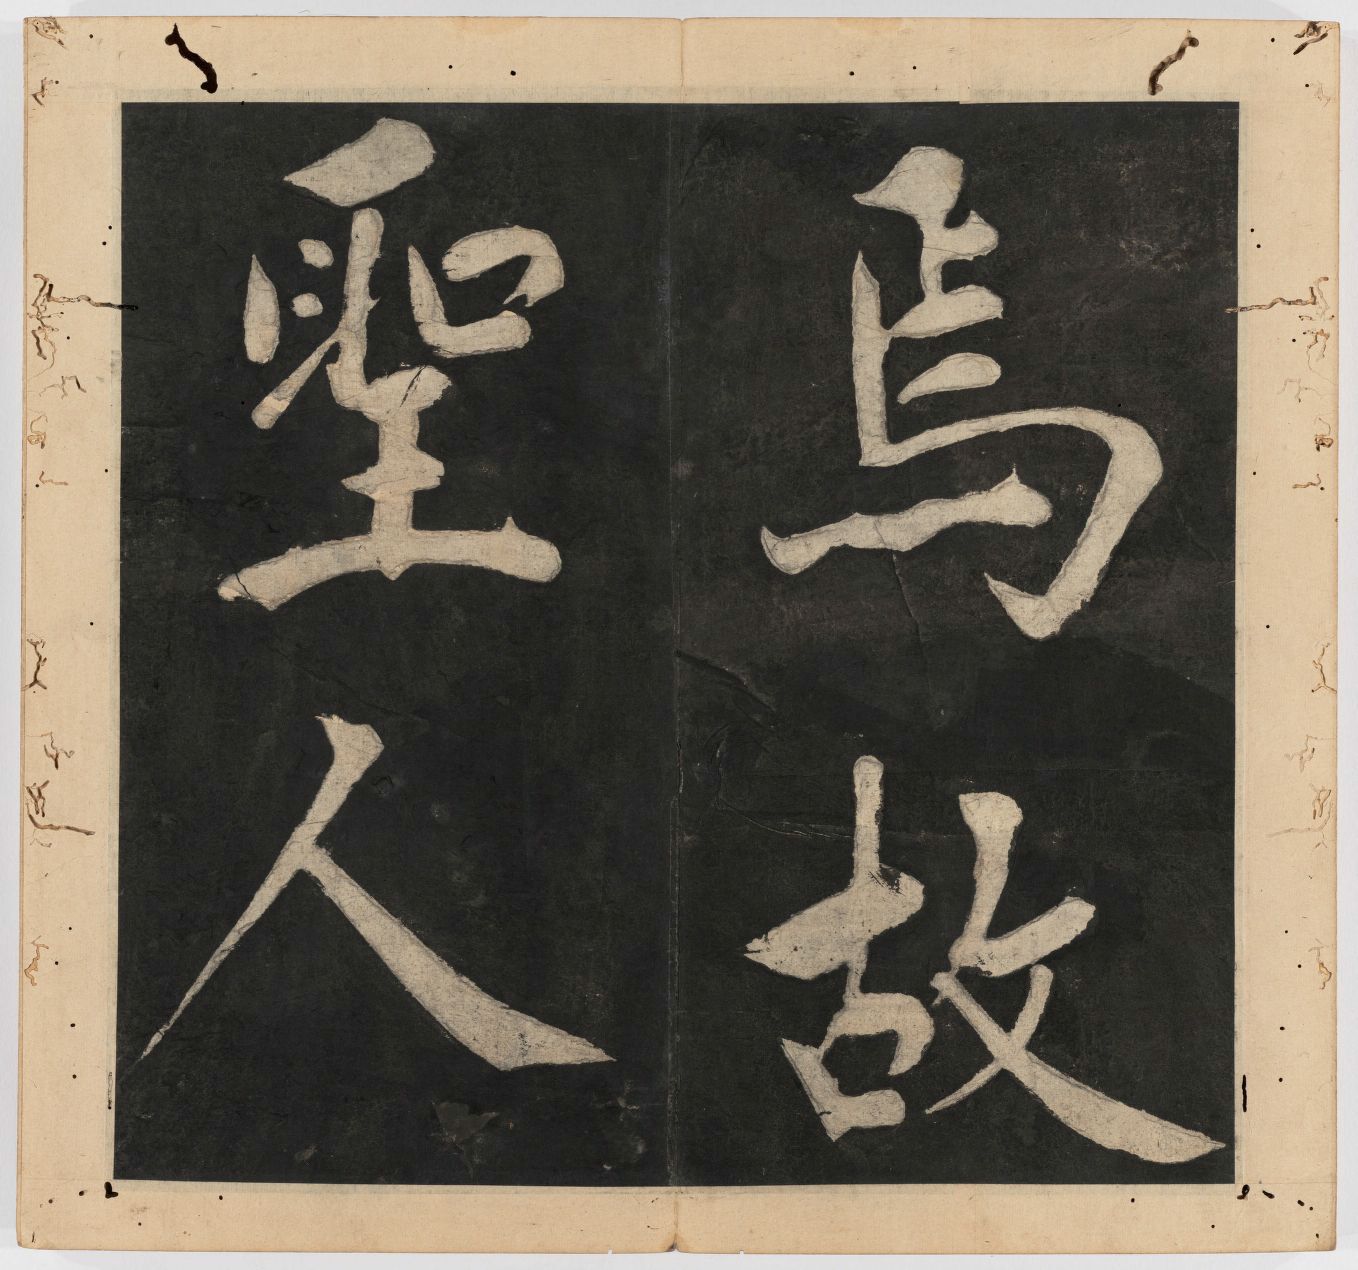 焉故
聖人